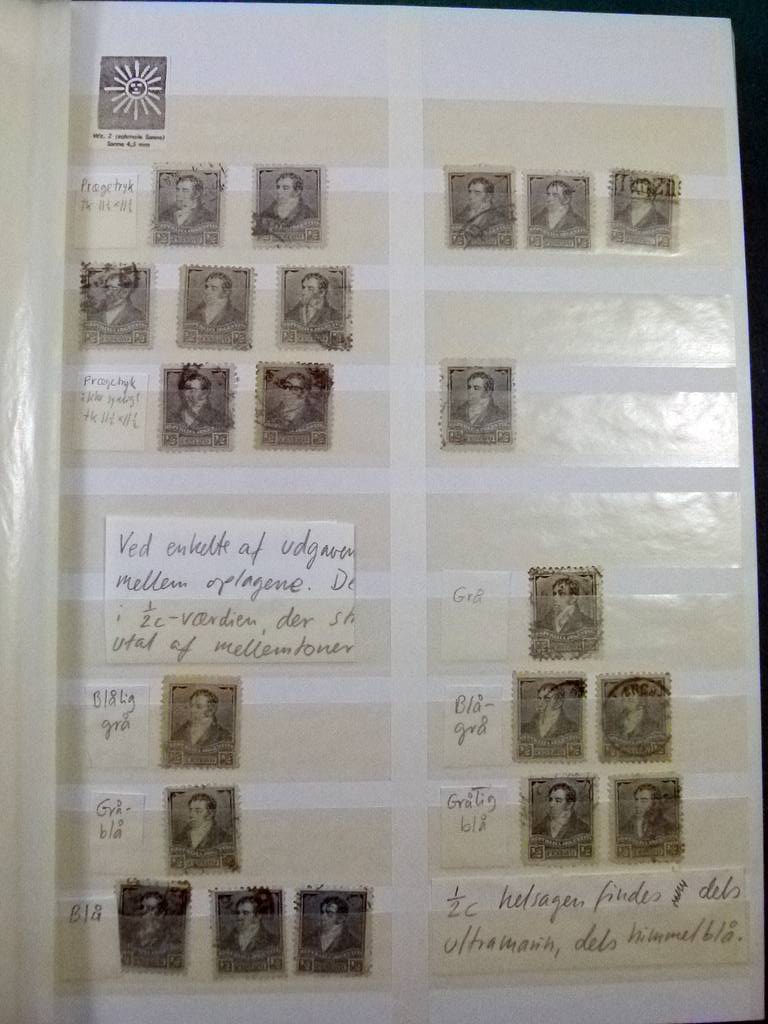 Wz. 2 (schmale Sonne)
Sonne 4,5 mm
Prægetryk
tk 11½ × 11½
Prægetryk
ikke synligt
tk 11½ × 11½
Ved enkelte af udgaven
mellem oplagene. De
i ½c-værdien, der st
utal af mellemtoner
Grå
Blålig
grå
Blå-
grå
Grå-
blå
Grålig
blå
Blå
½c helsagen findes dels
ultramarin, dels himmelblå.